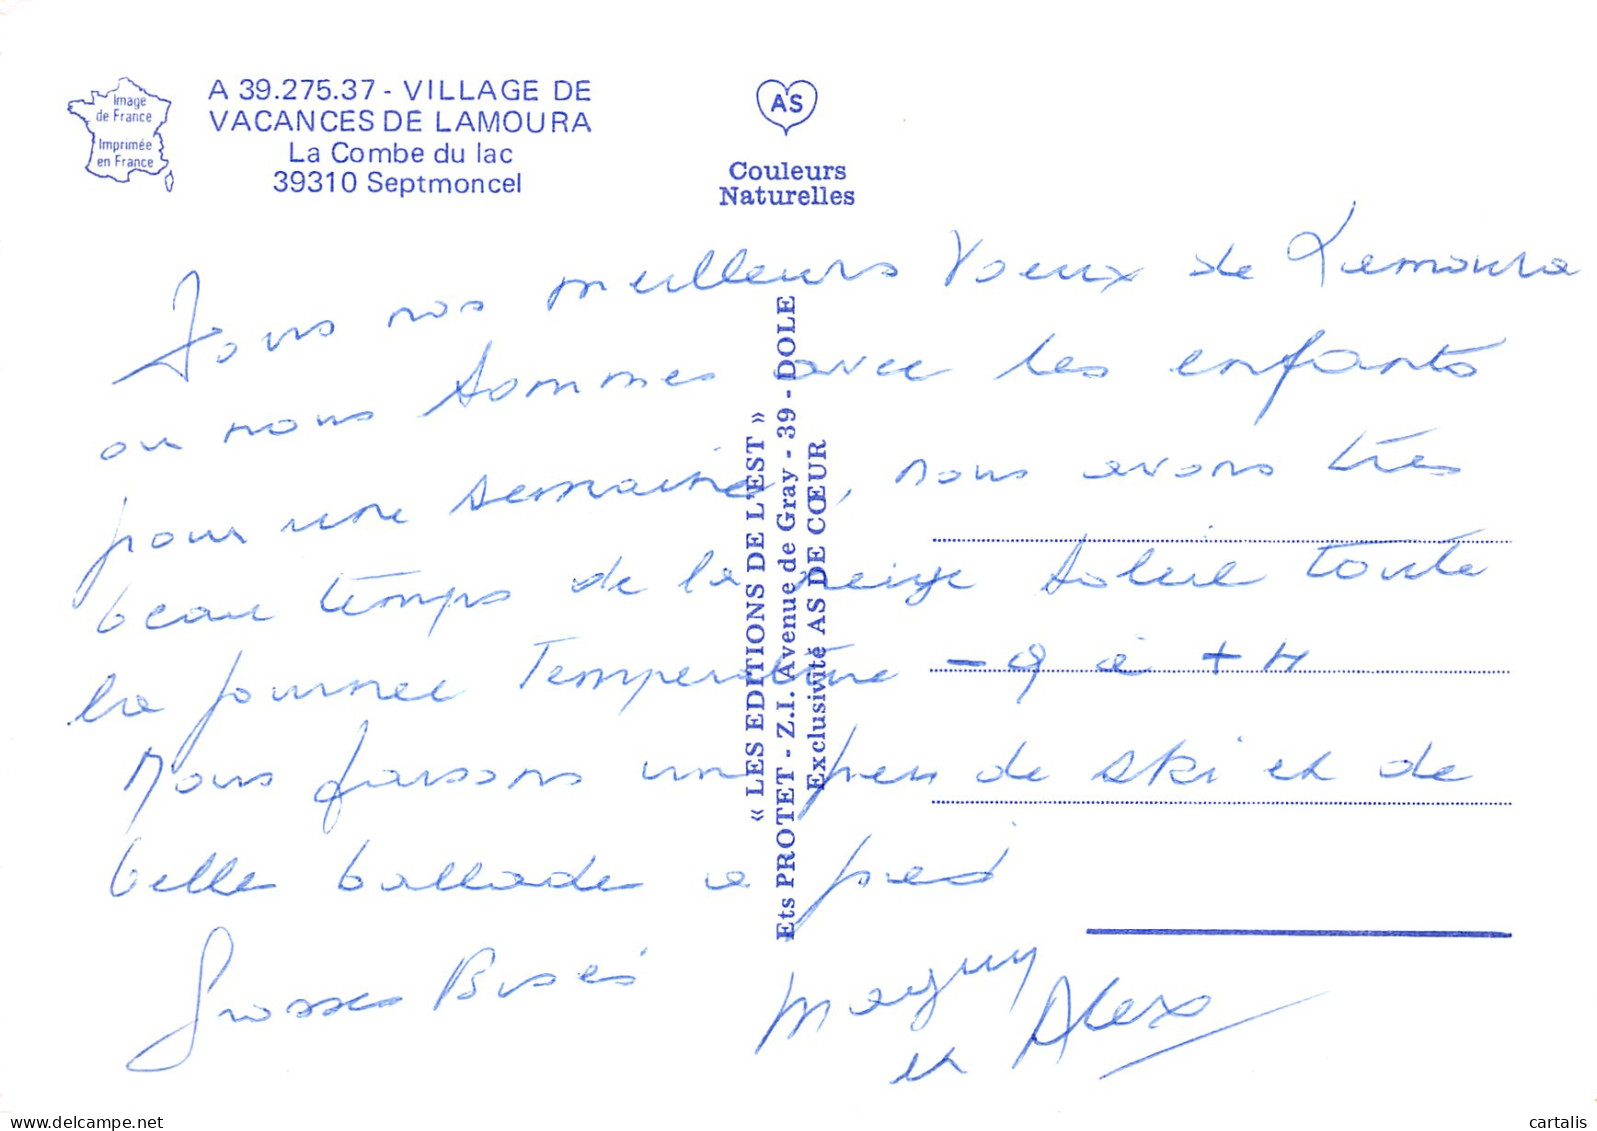 Image
de France
Imprimée
en France
A 39.275.37 - VILLAGE DE
VACANCES DE LAMOURA
La Combe du lac
39310 Septmoncel
AS
Couleurs
Naturelles
« LES EDITIONS DE L'EST »
Ets PROTET - Z.I. Avenue de Gray - 39 - DOLE
Exclusivité AS DE CŒUR
Tous nos meilleurs Voeux de Lamoura
ou nous sommes avec les enfants
pour une semaine, nous avons très
beau temps de la neige soleil toute
la journee Temperature - 9 à + 4
Nous faisons un peu de ski et de
belle ballade a pied
Grosses Bises
Maguy
et Alex
cartalis